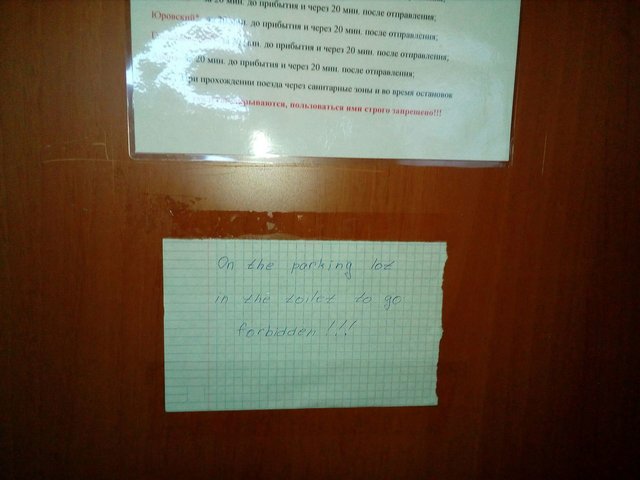 20 мин. до прибытия и через 20 мин. после отправления;
Юровский* до прибытия и через 20 мин. после отправления;
до прибытия и через 20 мин. после отправления;
20 мин. до прибытия и через 20 мин. после отправления;
при прохождении поезда через санитарные зоны и во время остановок
пользоваться ими строго запрещено!!!
On the parking lot
in the toilet to go
forbidden!!!